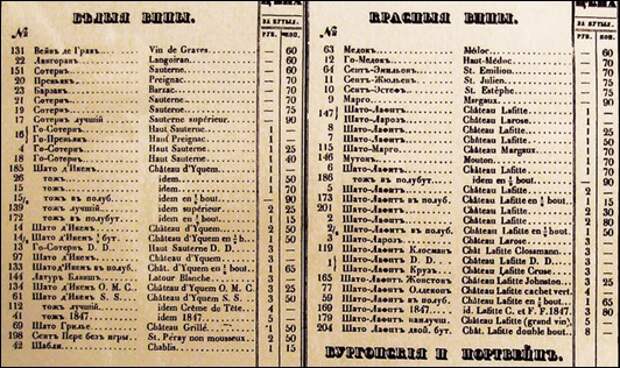 БѢЛЫЯ ВИНЫ. ЦѢНА
№ ЗА БУТЫЛ.
РУБ. КОП.
131 Вейнъ де Гравъ Vin de Graves — 60
22 Лангоранъ Langoiran — 60
151 Сотернъ Sauterne — 60
20 Преньякъ Preignac — 70
23 Барзакъ Barzac — 70
21 Сотернъ Sauterne — 70
19 Сотернъ Sauterne — 75
17 Сотернъ лучшій Sauterne supérieur — 90
16 Го-Сотернъ Haut Sauterne 1 —
Го-Преньякъ Haut Preignac 1 —
4 Го-Сотернъ Haut Sauterne 1 25
18 Го-Сотернъ Haut Sauterne 1 40
185 Шато д'Икемъ Château d'Yquem 1 —
26 тожъ idem 1 50
15 тожъ idem 1 70
тожъ въ полуб. idem en ½ bout. — 90
139 тожъ лучшій idem supérieur 2 25
172 тожъ въ полубут. idem en ½ bout. 1 15
14 Шато д'Икемъ Château d'Yquem
Шато д'Икемъ ½ бут. Château d'Yquem en ½ b.
13 Го-Сотернъ D. D. Haut Sauterne D. D. 3 —
97 Шато д'Икемъ Château d'Yquem 3 —
133 Шато д'Икемъ въ полуб. Chât. d'Yquem en ½ bout. 1 65
144 Латуръ Бланшъ Latour Blanche 3 —
134 Шато д'Икемъ О. М. С. Château d'Yquem O. M. C. 3 25
61 Шато д'Икемъ S. S. Château d'Yquem S. S. 3 50
112 тожъ лучшій idem Crême de Tête 4 —
41 тожъ 1847 idem 1847 5 —
69 Шато Грилье Château Grillé 1 50
198 Сентъ Пере безъ игры St. Péray non mousseux 2 50
42 Шабли Chablis 1 15
КРАСНЫЯ ВИНЫ. ЦѢНА
№ ЗА БУТЫЛ.
РУБ. КОП.
63 Медокъ Médoc — 60
12 Го-Медокъ Haut-Médoc — 70
64 Сентъ-Эмильонъ St. Emilion — 70
11 Сентъ-Жульенъ St. Julien — 75
10 Сентъ-Эстефъ St. Estèphe — 75
9 Марго Margaux — 90
147 Шато-Лафитъ Château Lafitte 1 —
Шато-Ларозъ Château Larose 1 —
8 Шато-Лафитъ Château Lafitte 1 25
7 Шато-Лафитъ Château Lafitte 1 50
115 Шато-Марго Château Margaux 1 70
146 Мутонъ Mouton 1 70
6 Шато-Лафитъ Château Lafitte 1 70
186 тожъ въ полубут. idem en ½ bout. — 90
5 Шато-Лафитъ Château Lafitte 2 —
173 Шато-Лафитъ въ полуб. Château Lafitte en ½ bout. 1 15
201 Шато-Лафитъ Château Lafitte 2 30
2 Шато-Лафитъ Château Lafitte 2 80
Шато-Лафитъ въ полуб. Château Lafitte en ½ bout. 1 50
3 Шато-Ларозъ Château Larose 3 —
119 Шато-Лафитъ Клосманъ Chât Lafitte Clossmann 3 —
1 Шато-Лафитъ D. D. Château Lafitte D. D. 3 —
Шато-Лафитъ Крузъ Château Lafitte Cruse 3 —
165 Шато-Лафитъ Жонстонъ Château Lafitte Johnston 3 25
77 Шато-Лафитъ Château Lafitte cachet vert. 4 —
59 Шато-Лафитъ въ полуб. Château Lafitte en ½ bout. 1 65
169 Шато-Лафитъ 1847 id. Lafitte C. et F. F. 1847. 3 80
179 Шато-Лафитъ наилучш. Château Lafitte (grand vin) 5 —
204 Шато-Лафитъ двой. бут. Chât. Lafitte double bout. 8 —
БУРГОНСКІЯ И ПОРТВЕЙНЪ.